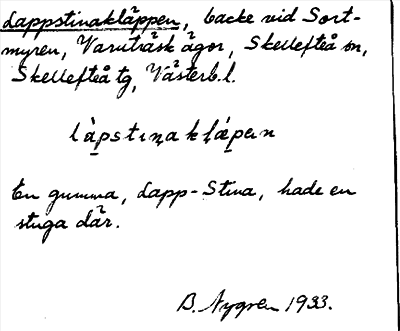 Lappstinakläppen, backe vid Sort-
myren, Varuträsk ägor, Skellefteå sn,
Skellefteå tg, Västerb. l.
En gumma, Lapp-Stina, hade en
stuga där.
B. Nygren 1933.